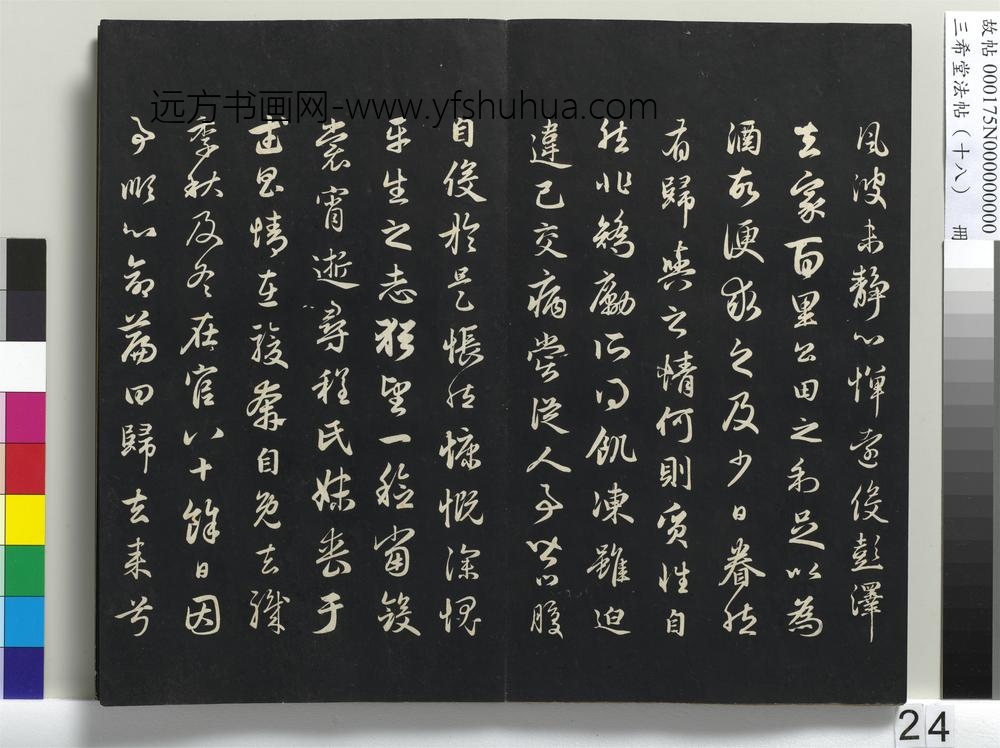 远方书画网-www.yfshuhua.com
風波未静心惮遠役彭澤
去家百里公田之利足以為
酒故便求之及少日眷然
有歸與之情何則質性自
然非矯勵所得飢凍雖迫
違己交病嘗從人事皆口腹
自役於是悵然慷慨深愧
平生之志猶望一稔當斂
裳宵逝尋程氏妹喪于
武昌情在駿奔自免去職
季秋及冬在官八十餘日因
事順心命篇曰歸去来兮
故帖 000175N000000000
三希堂法帖（十八） 冊
24